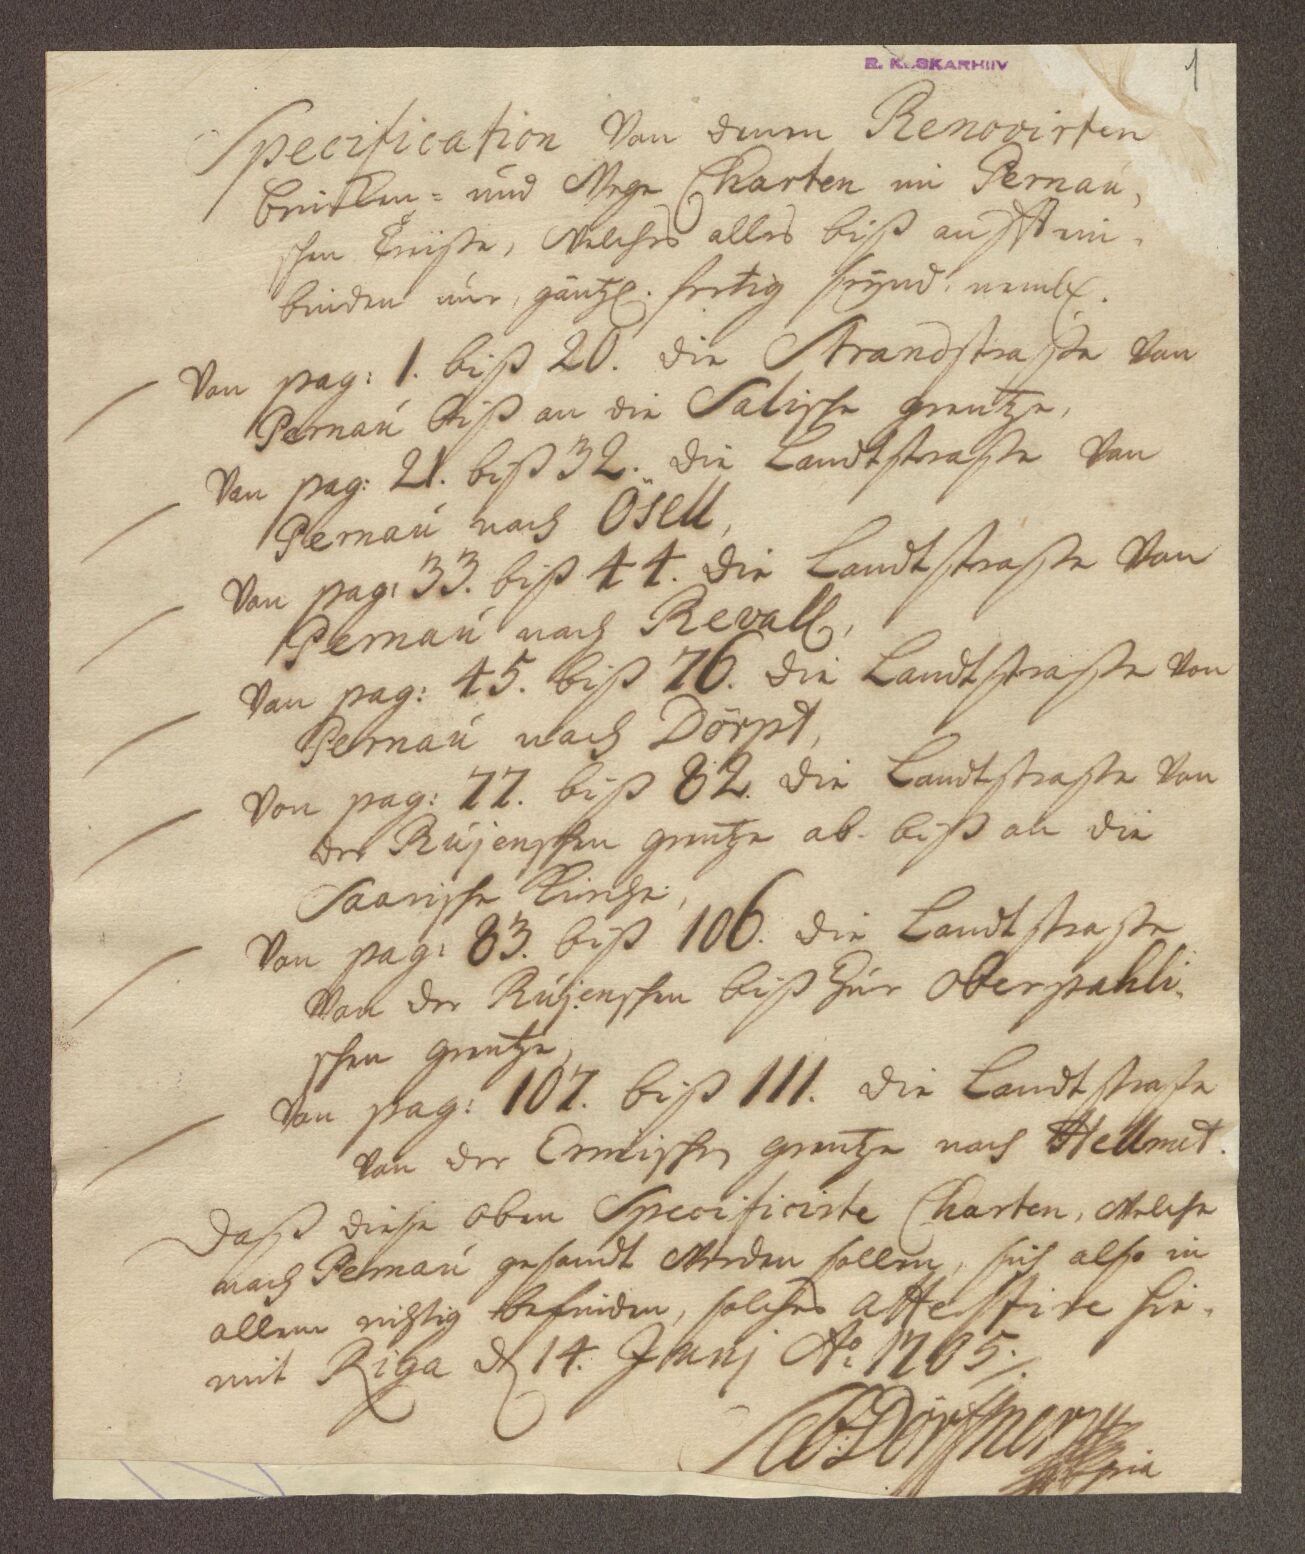 E. K. SKARHIIV
1
Specification von denen Renovirten
brücken- und Wege Charten im Pernau,
schen Creiße, Welches alles biß aufs Ein,
binden nur, gäntzl. fertig seÿnd, neml.
Von pag: 1. biß 20. die Strandstraße von
Pernau biß an die Salische grentze,
Von pag: 21. biß 32. die Landtstraße von
Pernau nach Ösell,
Von pag: 33. biß 44. die Landtstraße von
Pernau nach Revall,
Von pag: 45. biß 76. die Landtstraße von
Pernau nach Dörpt,
Von pag: 77. biß 82. die Landtstraße von
der Rujenschen grentze ab. biß an die
Saarische Kirche,
Von pag: 83. biß 106. die Landtstraße
von der Rujenschen biß zur Oberpahli,
schen grentze,
Von pag: 107. biß 111. die Landtstraße
von der Ermischen grentze nach Hellmet.
Daß diese oben Specificirte Charten, Welche
nach Pernau gesandt Werden sollen, sich also in
allem richtig befinden, solches attestire hie,
mit Riga d 14. Junj Ao: 1705.
Seb: Dörffner
mpria